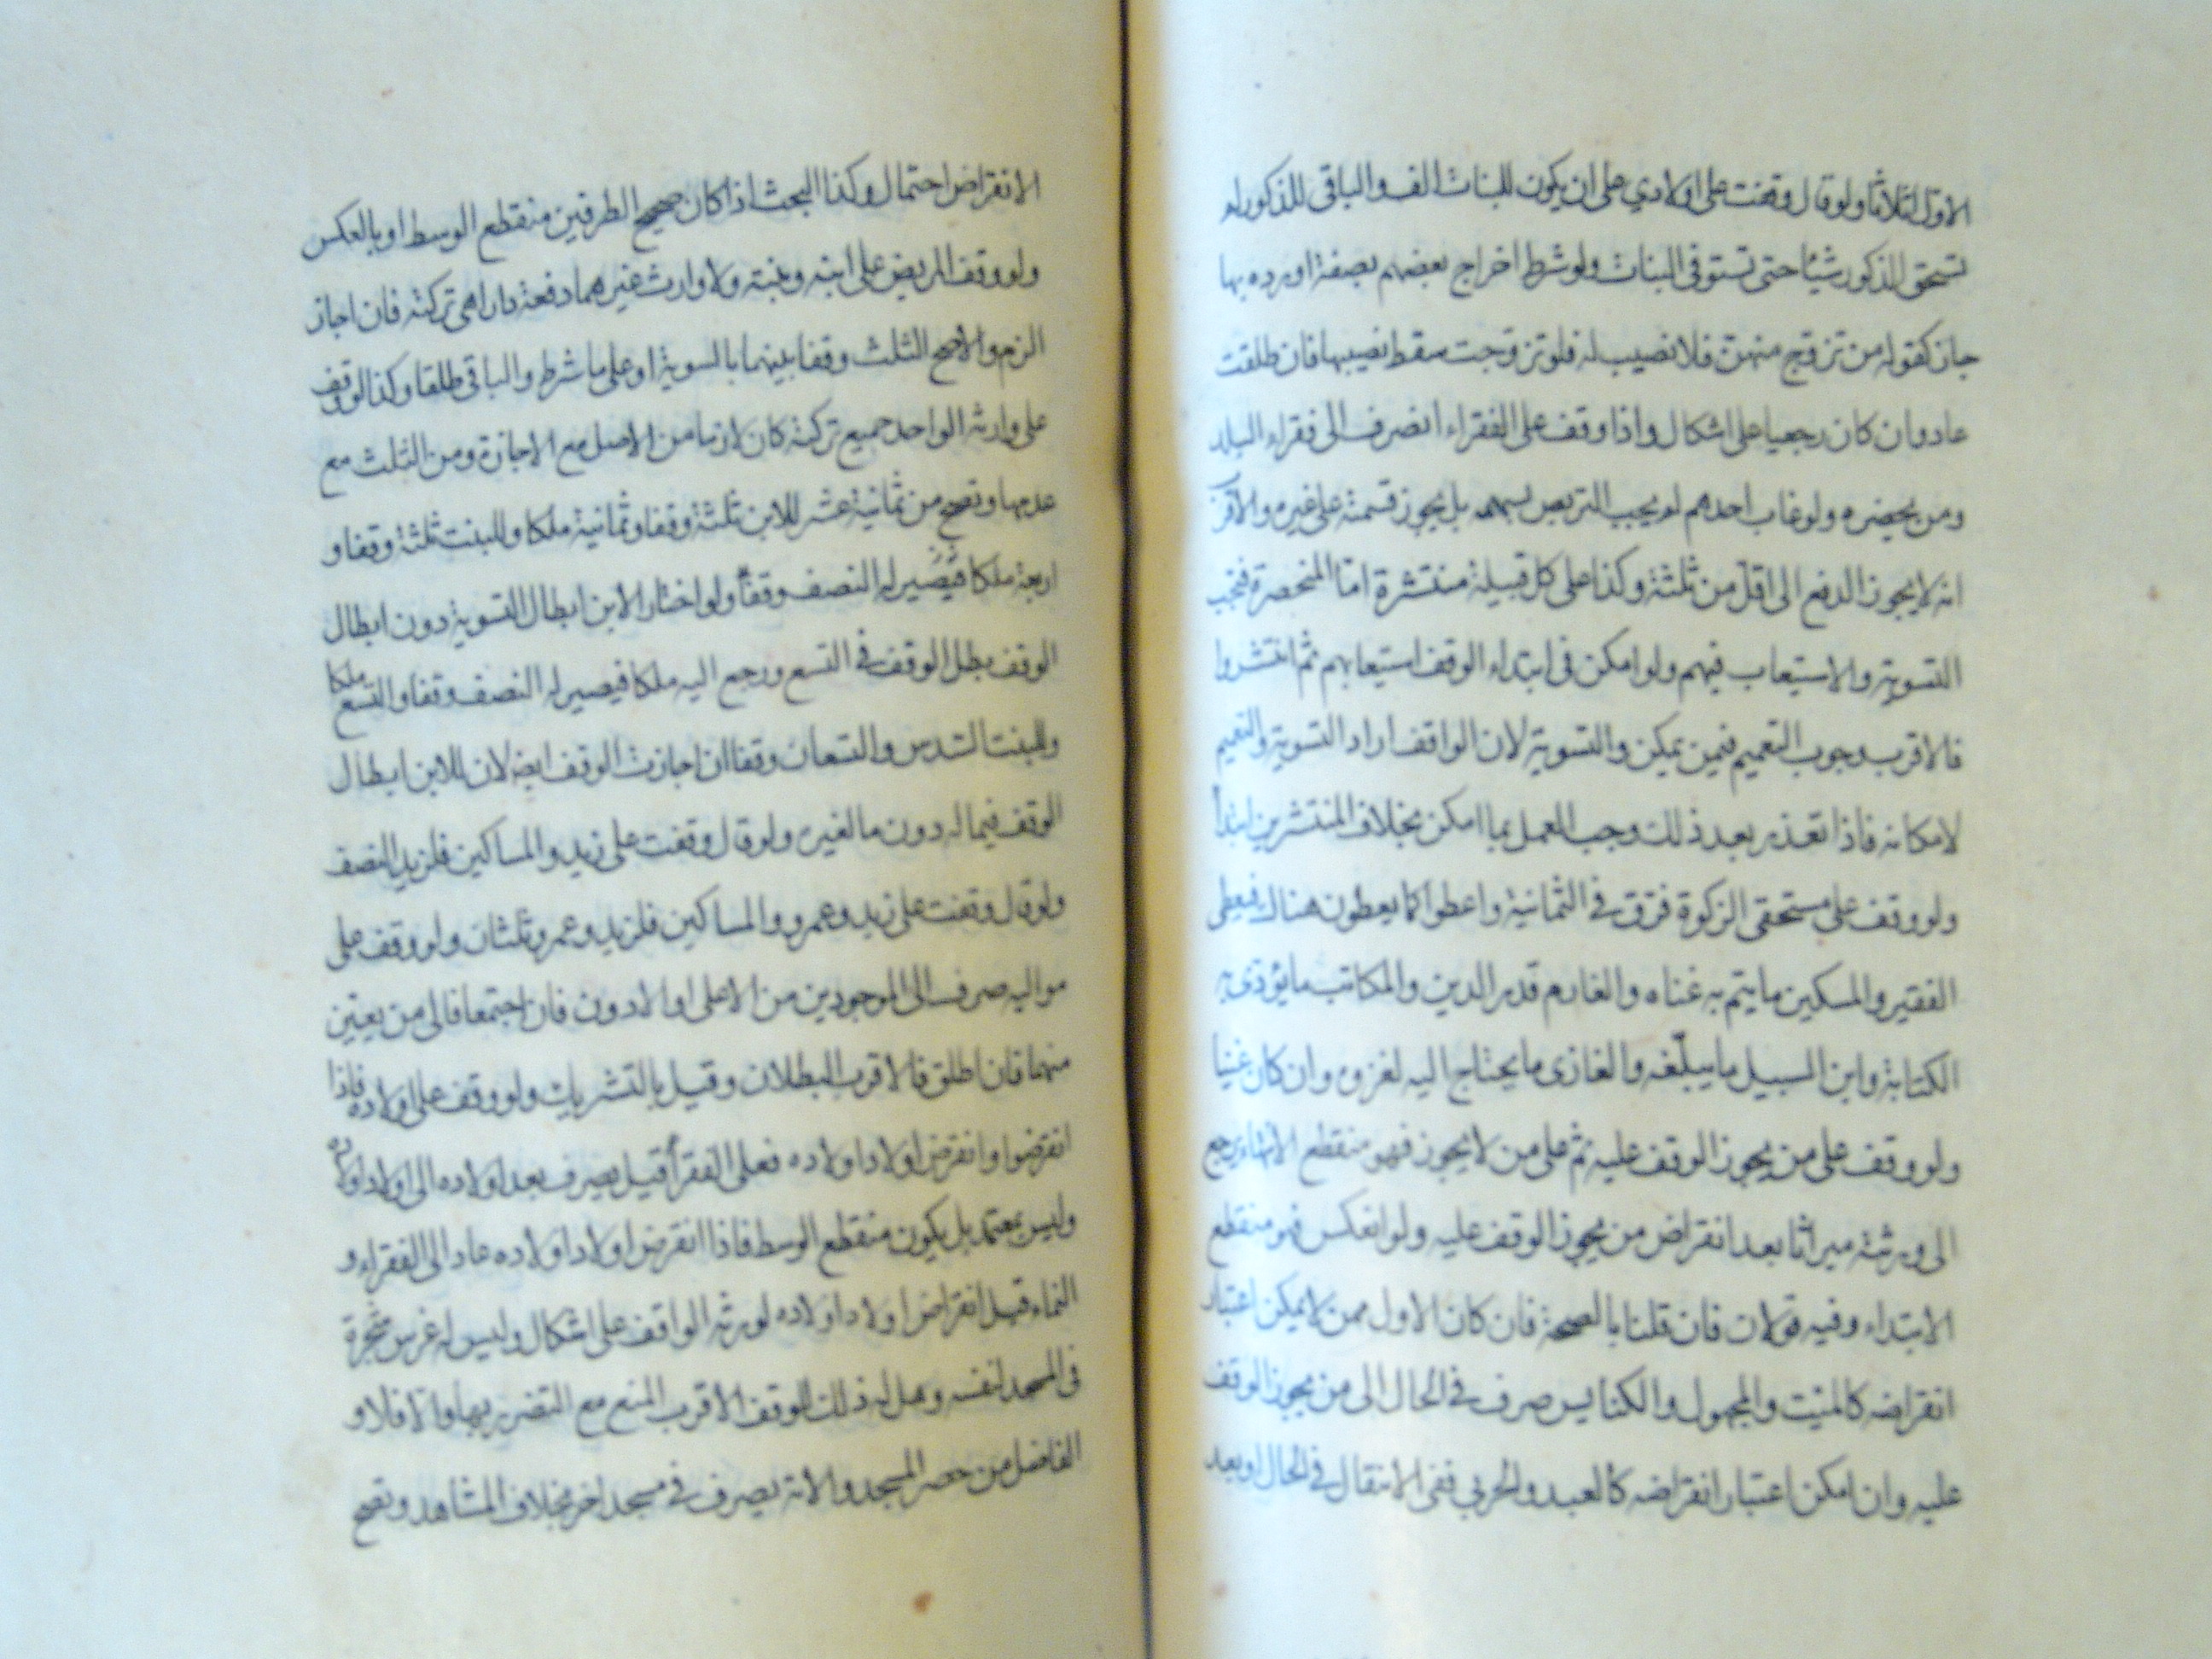 الاول اثلاثا ولو قال وقفت على اولادي على ان يكون للبنات الف والباقي للذكور لم
تسحق الذكور شيئا حتى تستوفي البنات ولو شرط اخراج بعضهم بصفة او رده بها
جاز كقوله من تزوج منهن فلا نصيب له فلو تزوجت سقط نصيبها فان طلقت
عاد وان كان رجعيا على اشكال واذا وقف على الفقراء انصرف الى فقراء البلد
ومن يحضره ولو غاب احدهم لم يجب التربص بسهمه بل يجوز قسمته على غيره والاقرب
انه لا يجوز الدفع الى اقل من ثلثة وكذا على كل قبيلة منتشرة اما المنحصرة فيجب
التسوية والاستيعاب فيهم ولو امكن في ابتداء الوقف استيعابهم ثم انتشروا
فالاقرب وجوب التعميم فيمن يمكن والتسوية لان الواقف اراد التسوية والتعميم
لامكانه فاذا تعذر بعد ذلك وجب العمل بما امكن بخلاف المنتشرين ابتدأ
ولو وقف على مستحقي الزكوة فرق في الثمانية واعطوا كما يعطون هناك فيعطى
الفقير والمسكين ما يتم به غناه والغارم قدر الدين والمكاتب ما يؤدي به
الكتابة وابن السبيل ما يبلغه والغازي ما يحتاج اليه لغزوه وان كان غنيا
ولو وقف على من يجوز الوقف عليه ثم على من لا يجوز فهو منقطع الانتهاء يرجع
الى ورثته ميراثا بعد انقراض من يجوز الوقف عليه ولو انعكس فهو منقطع
الابتداء وفيه قولان فان قلنا بالصحة فان كان الاول ممن لا يمكن اعتبار
انقراضه كالميت والمجهول والكنايس صرف في الحال الى من يجوز الوقف
عليه وان امكن اعتبار انقراضه كالعبد والحربي ففي الانتقال في الحال او بعد
الانقراض احتمال وكذا البحث اذا كان صحيح الطرفين منقطع الوسط او بالعكس
ولو وقف المريض على ابنه وبنته ولا وارث غيرهما دفعة دارا هي تركته فان اجاز
الزم والا صح الثلث وقفا بينهما بالسوية او على ما شرط والباقي طلقا وكذا لو وقف
على وارثه الواحد جميع تركته كان لازما من الاصل مع الاجازة ومن الثلث مع
عدمها وتصح من ثمانية عشر للابن ثلثة وقفا وثمانية ملكا وللبنت ثلثة وقفا و
اربعة ملكا فيصير له النصف وقفا ولو اختار الابن ابطال التسوية دون ابطال
الوقف بطل الوقف في التسع ورجع اليه ملكا فيصير له النصف وقفا والتسع ملكا
وللبنت السدس والتسعان وقفا ان اجازت الوقف ايضه لان للابن ابطال
الوقف فيما له دون ما لغيره ولو قال وقفت على زيد والمساكين فلزيد النصف
ولو قال وقفت على زيد وعمرو والمساكين فلزيد وعمرو ثلثان ولو وقف على
مواليه صرف الى الموجودين من الاعلى او الادون فان اجتمعا فالى من يعين
منهما فان اطلق فالاقرب البطلان وقيل بالتشريك ولو وقف على اولاده فاذا
انقرضوا وانقرض اولاد اولاده فعلى الفقرأ قيل يصرف بعد اولاده الى اولاد اولاده
وليس بمعتمد بل يكون منقطع الوسط فاذا انقرض اولاد اولاده عاد الى الفقراء و
النماء قبل انقراض اولاد اولاده لورثه الواقف على اشكال وليس له غرس شجرة
في المسجد لنفسه وهل له ذلك للوقف الاقرب المنع مع التضرر بها والا فلا و
الفاضل من حصر المسجد والاته يصرف في مسجد اخر بخلاف المشاهد وتصح